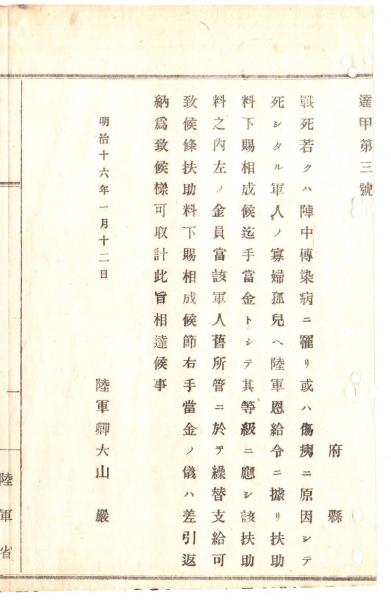 達甲第三號
府縣
戰死若クハ陣中傳染病ニ罹リ或ハ傷痍ニ原因シテ
死シタル軍人ノ寡婦孤兒ヘ陸軍恩給令ニ據リ扶助
料下賜相成候迄手當金トシテ其等級ニ應シ該扶助
料之內左ノ金員當該軍人舊所管ニ於テ繰替支給可
致候條扶助料下賜相成候節右手當金ノ儀ハ差引返
納爲致候樣可取計此旨相達候事
明治十六年一月十二日
陸軍卿大山巖
陸軍省